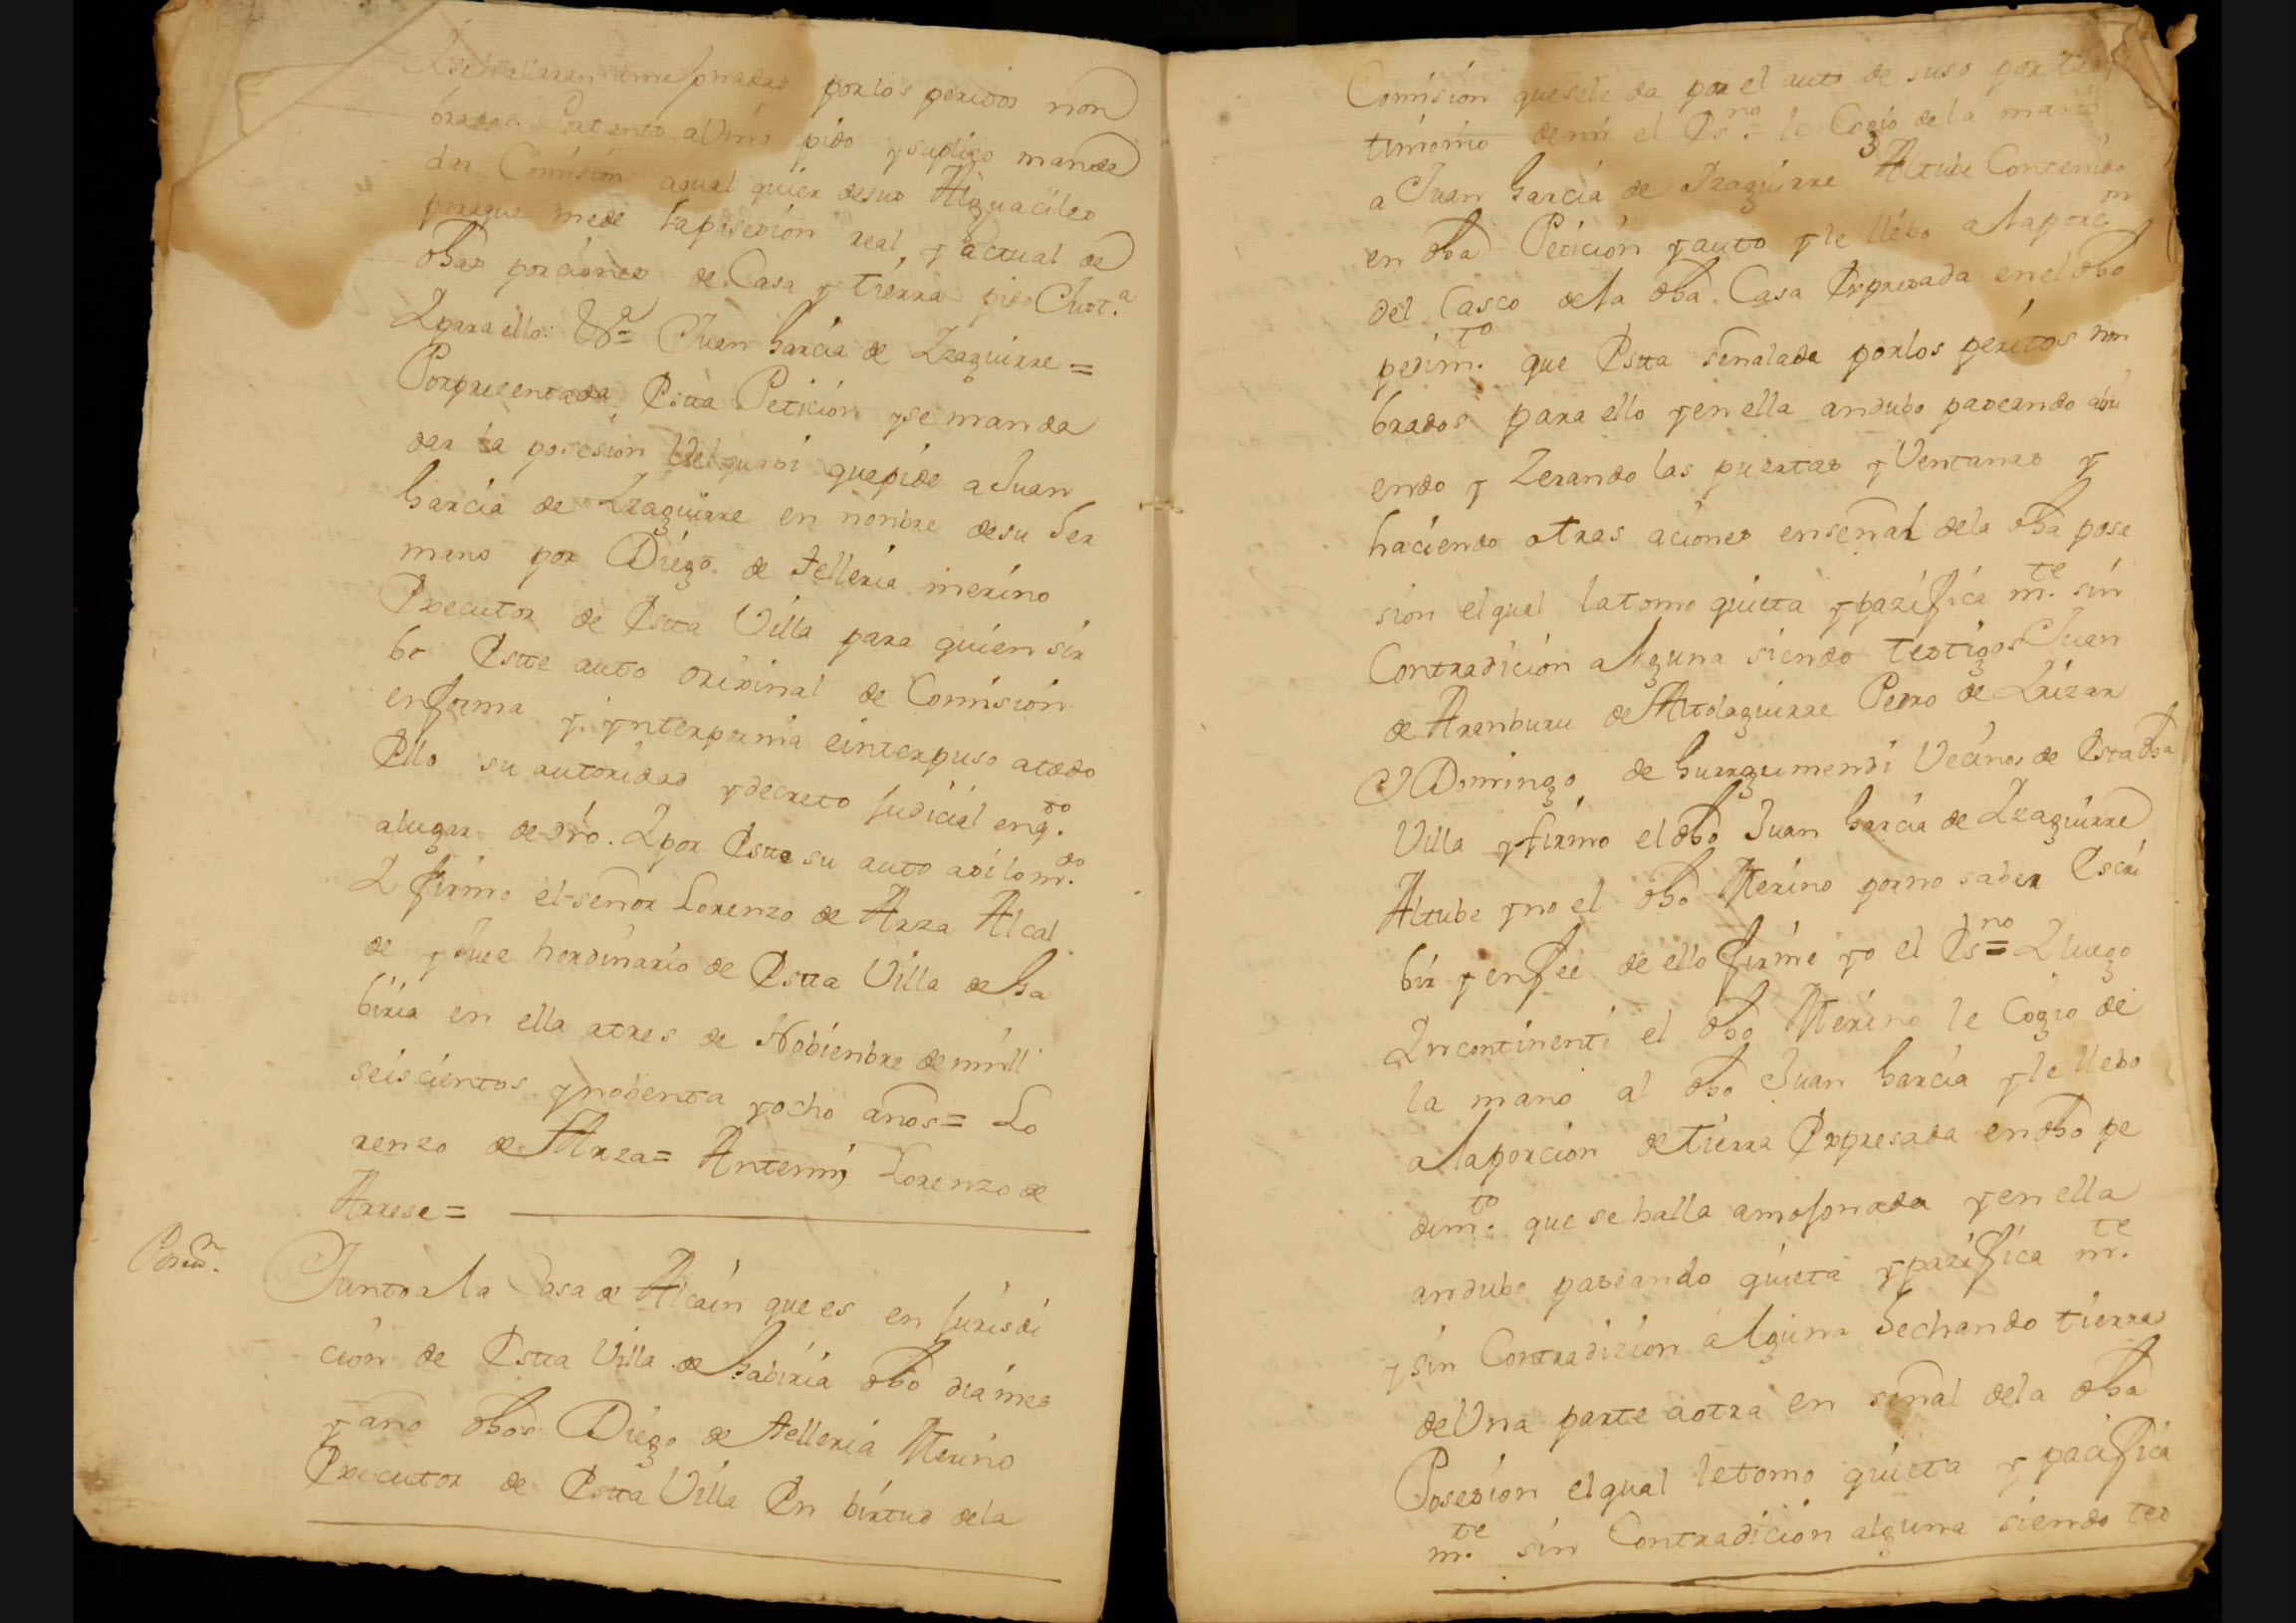 Y se hallaran amojonadas por los peritos non
brados. Por tanto a Vmd pido y suplico mande
dar Comision aqual quier desus Alguaciles
paraque mede la posesion real, y actual de
dhas porciones de Casa y tierra pido Just.ª
Y para ello: &ª Juan Garcia de Yzaguirre =
Por presentada Estta Peticion y se manda
dar la posesion que pide a Juan
Garcia de Yzaguirre en nonbre desu Her
mano por Diego de Telleria merino
Executor de Estta Villa para quien sir
be Este auto orixinal de Comision
en forma y ynterponia e interpuso atodo
Ello su autoridad y decreto Judicial enq.to
alugar de dro. Y por Estte su auto asi lo m.do
Y firmo el señor Lorenzo de Arza Alcal
de y Juez hordinario de Estta Villa de Ga
biria en ella atres de Nobienbre de mill
seiscientos y nobenta y ocho años = Lo
renzo de Arza = Antemi, Lorenzo de
Arrese =
Poses.n
Junto a la Casa de Alcain que es en Jurisdi
cion de Estta Villa de Gabiria dho dia mes
y año dhos Diego de Telleria Merino
Executor de Estta Villa En birtud dela
Comision quesele da por el auto de suso por tes
timonio demi el Es.no le Cogio dela mano
a Juan Garcia de Yzaguirre Altube Contenido
en dha Peticion y auto y le llebo a la porc.on
del Casco dela dha Casa Expresada en el dho
pedim.to que Estta señalada por los peritos non
brados para ello y en ella andubo paseando abri
endo y Zerando las puertas y Ventanas y
haciendo otras aciones enseñal dela dha pose
sion elqual latomo quieta y pazifica m.te sin
Contradicion alguna siendo testigos Juan
de Aranburu de Altolaguirre Pedro de Yrizar
Y Domingo de Gurrumendi Vecinos de Esta dha
Villa y firmo el dho Juan Garcia de Yzaguirre
Altube y no el dho Merino por no saber Escri
bir y enfee de ello firme yo el Es.no = Y luego
Yncontinenti el dho Merino le Cogio de
la mano al dho Juan Garcia y le llebo
a la porcion de tierra Expresada en dho pe
dim.to que se halla amojonada y en ella
andubo paseando quieta y pazifica m.te
y sin Contradizion alguna hechando tierra
de Una parte a otra en señal dela dha
Posesion elqual letomo quieta y pacifica
m.te sin Contradicion alguna siendo tes